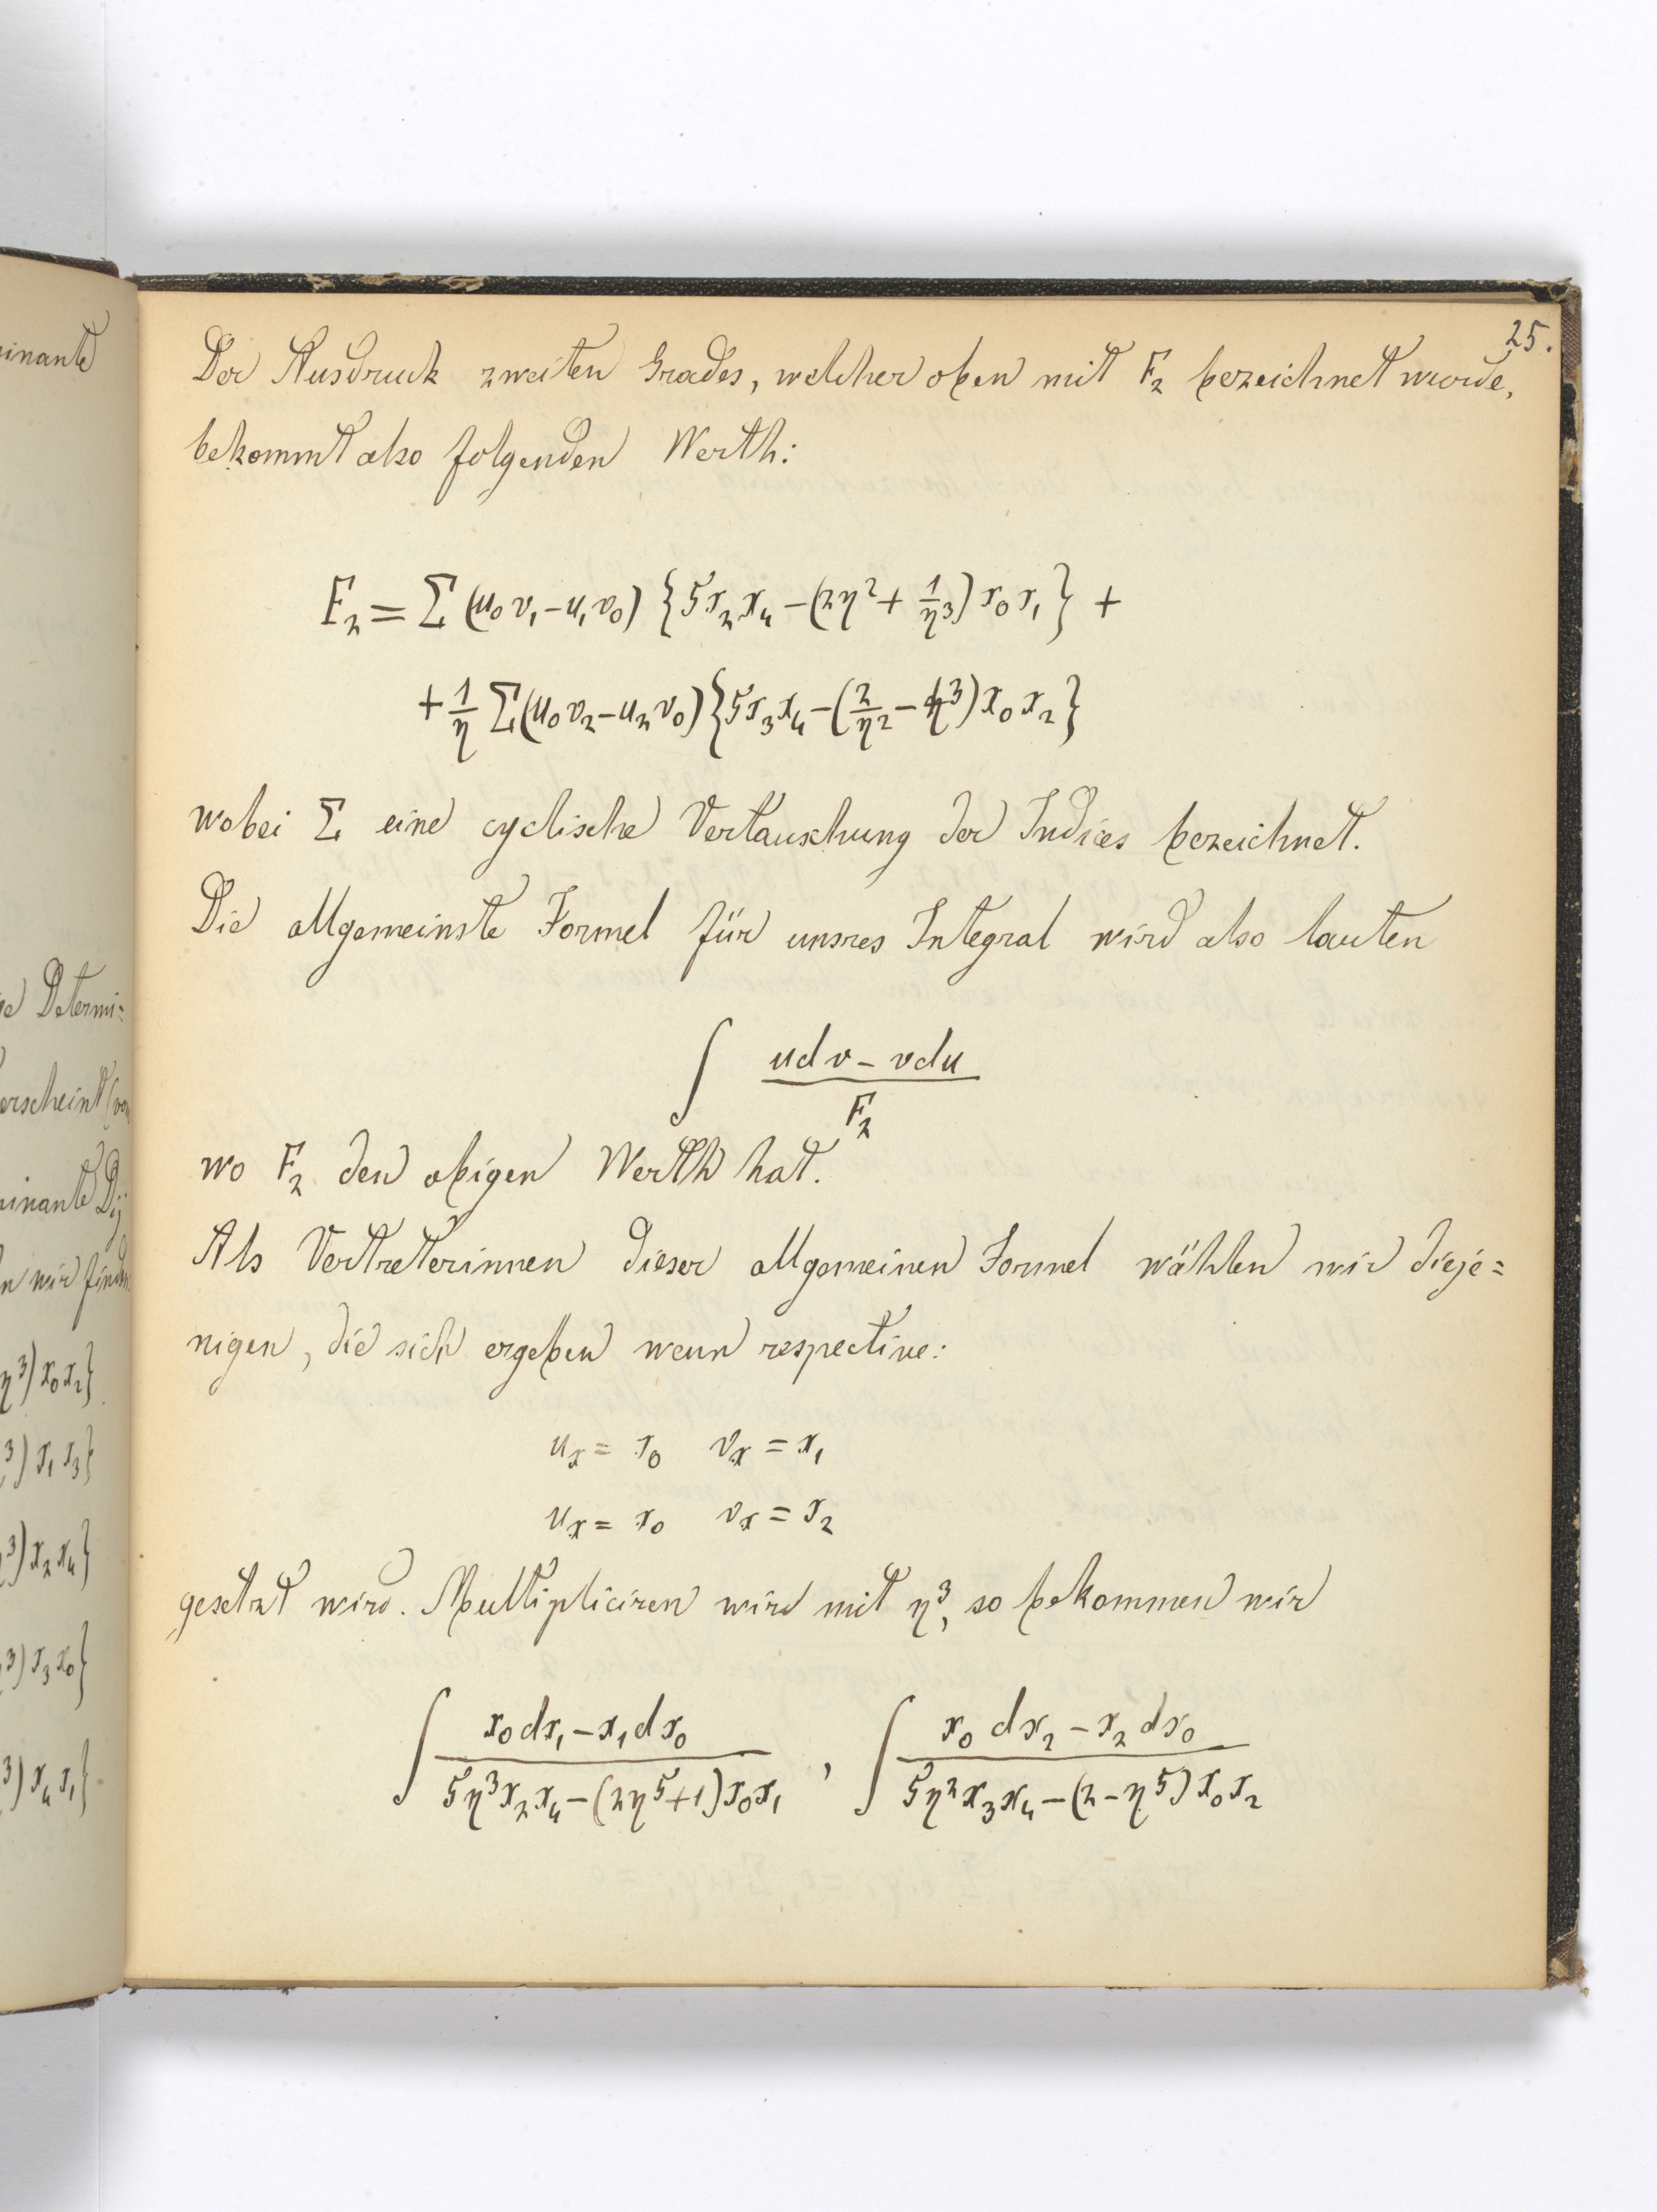 inante
e Determi:
erscheint (von
inante Dij
n wir finden
η³) x₀x₂}
³) x₁x₃}
³) x₂x₄}
³) x₃x₀}
³) x₄x₁}
25.
Der Ausdruck zweiten Grades, welcher oben mit F₂ bezeichnet wurde,
bekommt also folgenden Werth:
F₂ = Σ (u₀v₁ − u₁v₀) {5x₂x₄ − (2η² + 1/η³) x₀x₁} +
+ 1/η Σ(u₀v₂ − u₂v₀) {5x₃x₄ − (2/η² − η³) x₀x₂}
wobei Σ eine cyclische Vertauschung der Indices bezeichnet.
Die allgemeinste Formel für unsres Integral wird also lauten
∫ (udv − vdu)/F₂
wo F₂ den obigen Werth hat.
Als Vertreterinnen dieser allgemeinen Formel wählen wir dieje=
nigen, die sich ergeben wenn respective:
uₓ = x₀ vₓ = x₁
uₓ = x₀ vₓ = x₂
gesetzt wird. Multipliciren wird mit η³, so bekommen wir
∫ (x₀dx₁ − x₁dx₀)/(5η³x₂x₄ − (2η⁵+1)x₀x₁) , ∫ (x₀dx₂ − x₂dx₀)/(5η²x₃x₄ − (2−η⁵)x₀x₂)